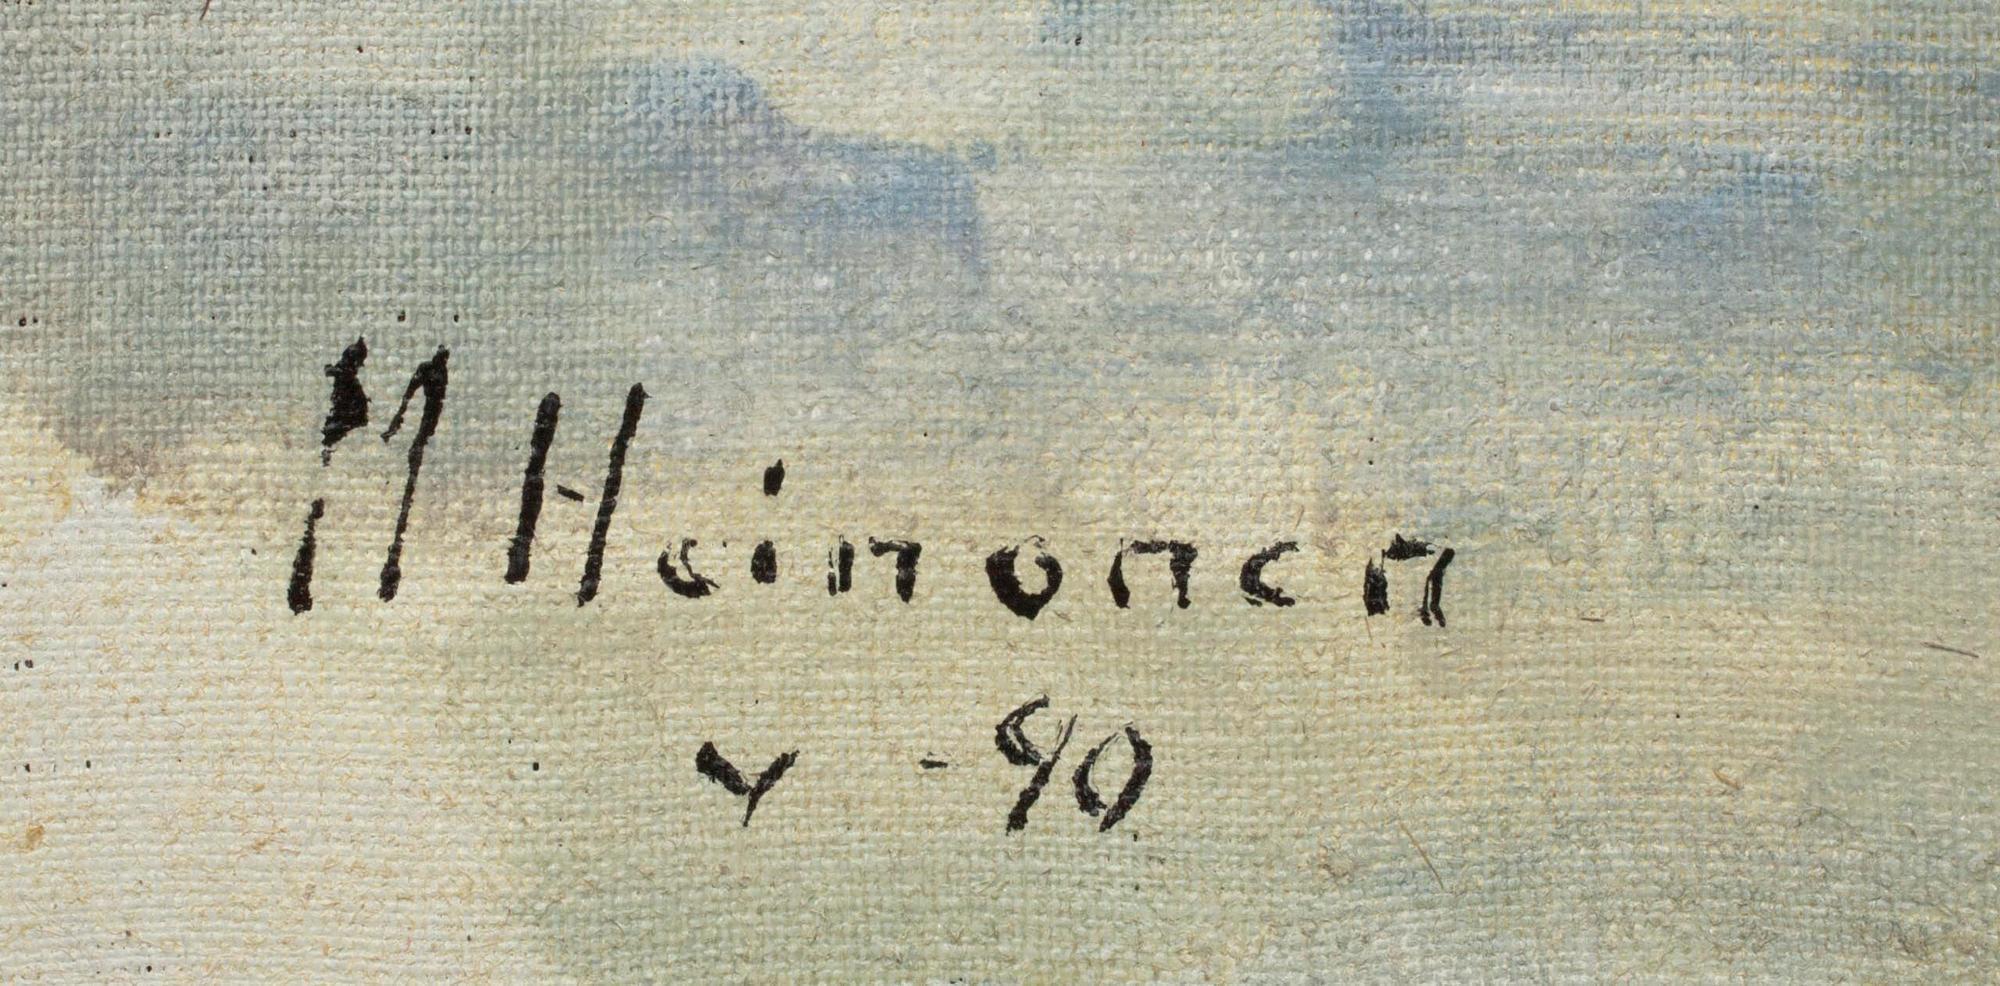 M Heinonen
v -90